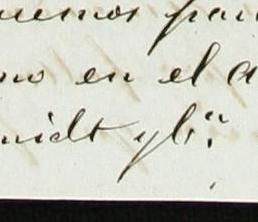 uemos par
no en el a
midt y Cª.